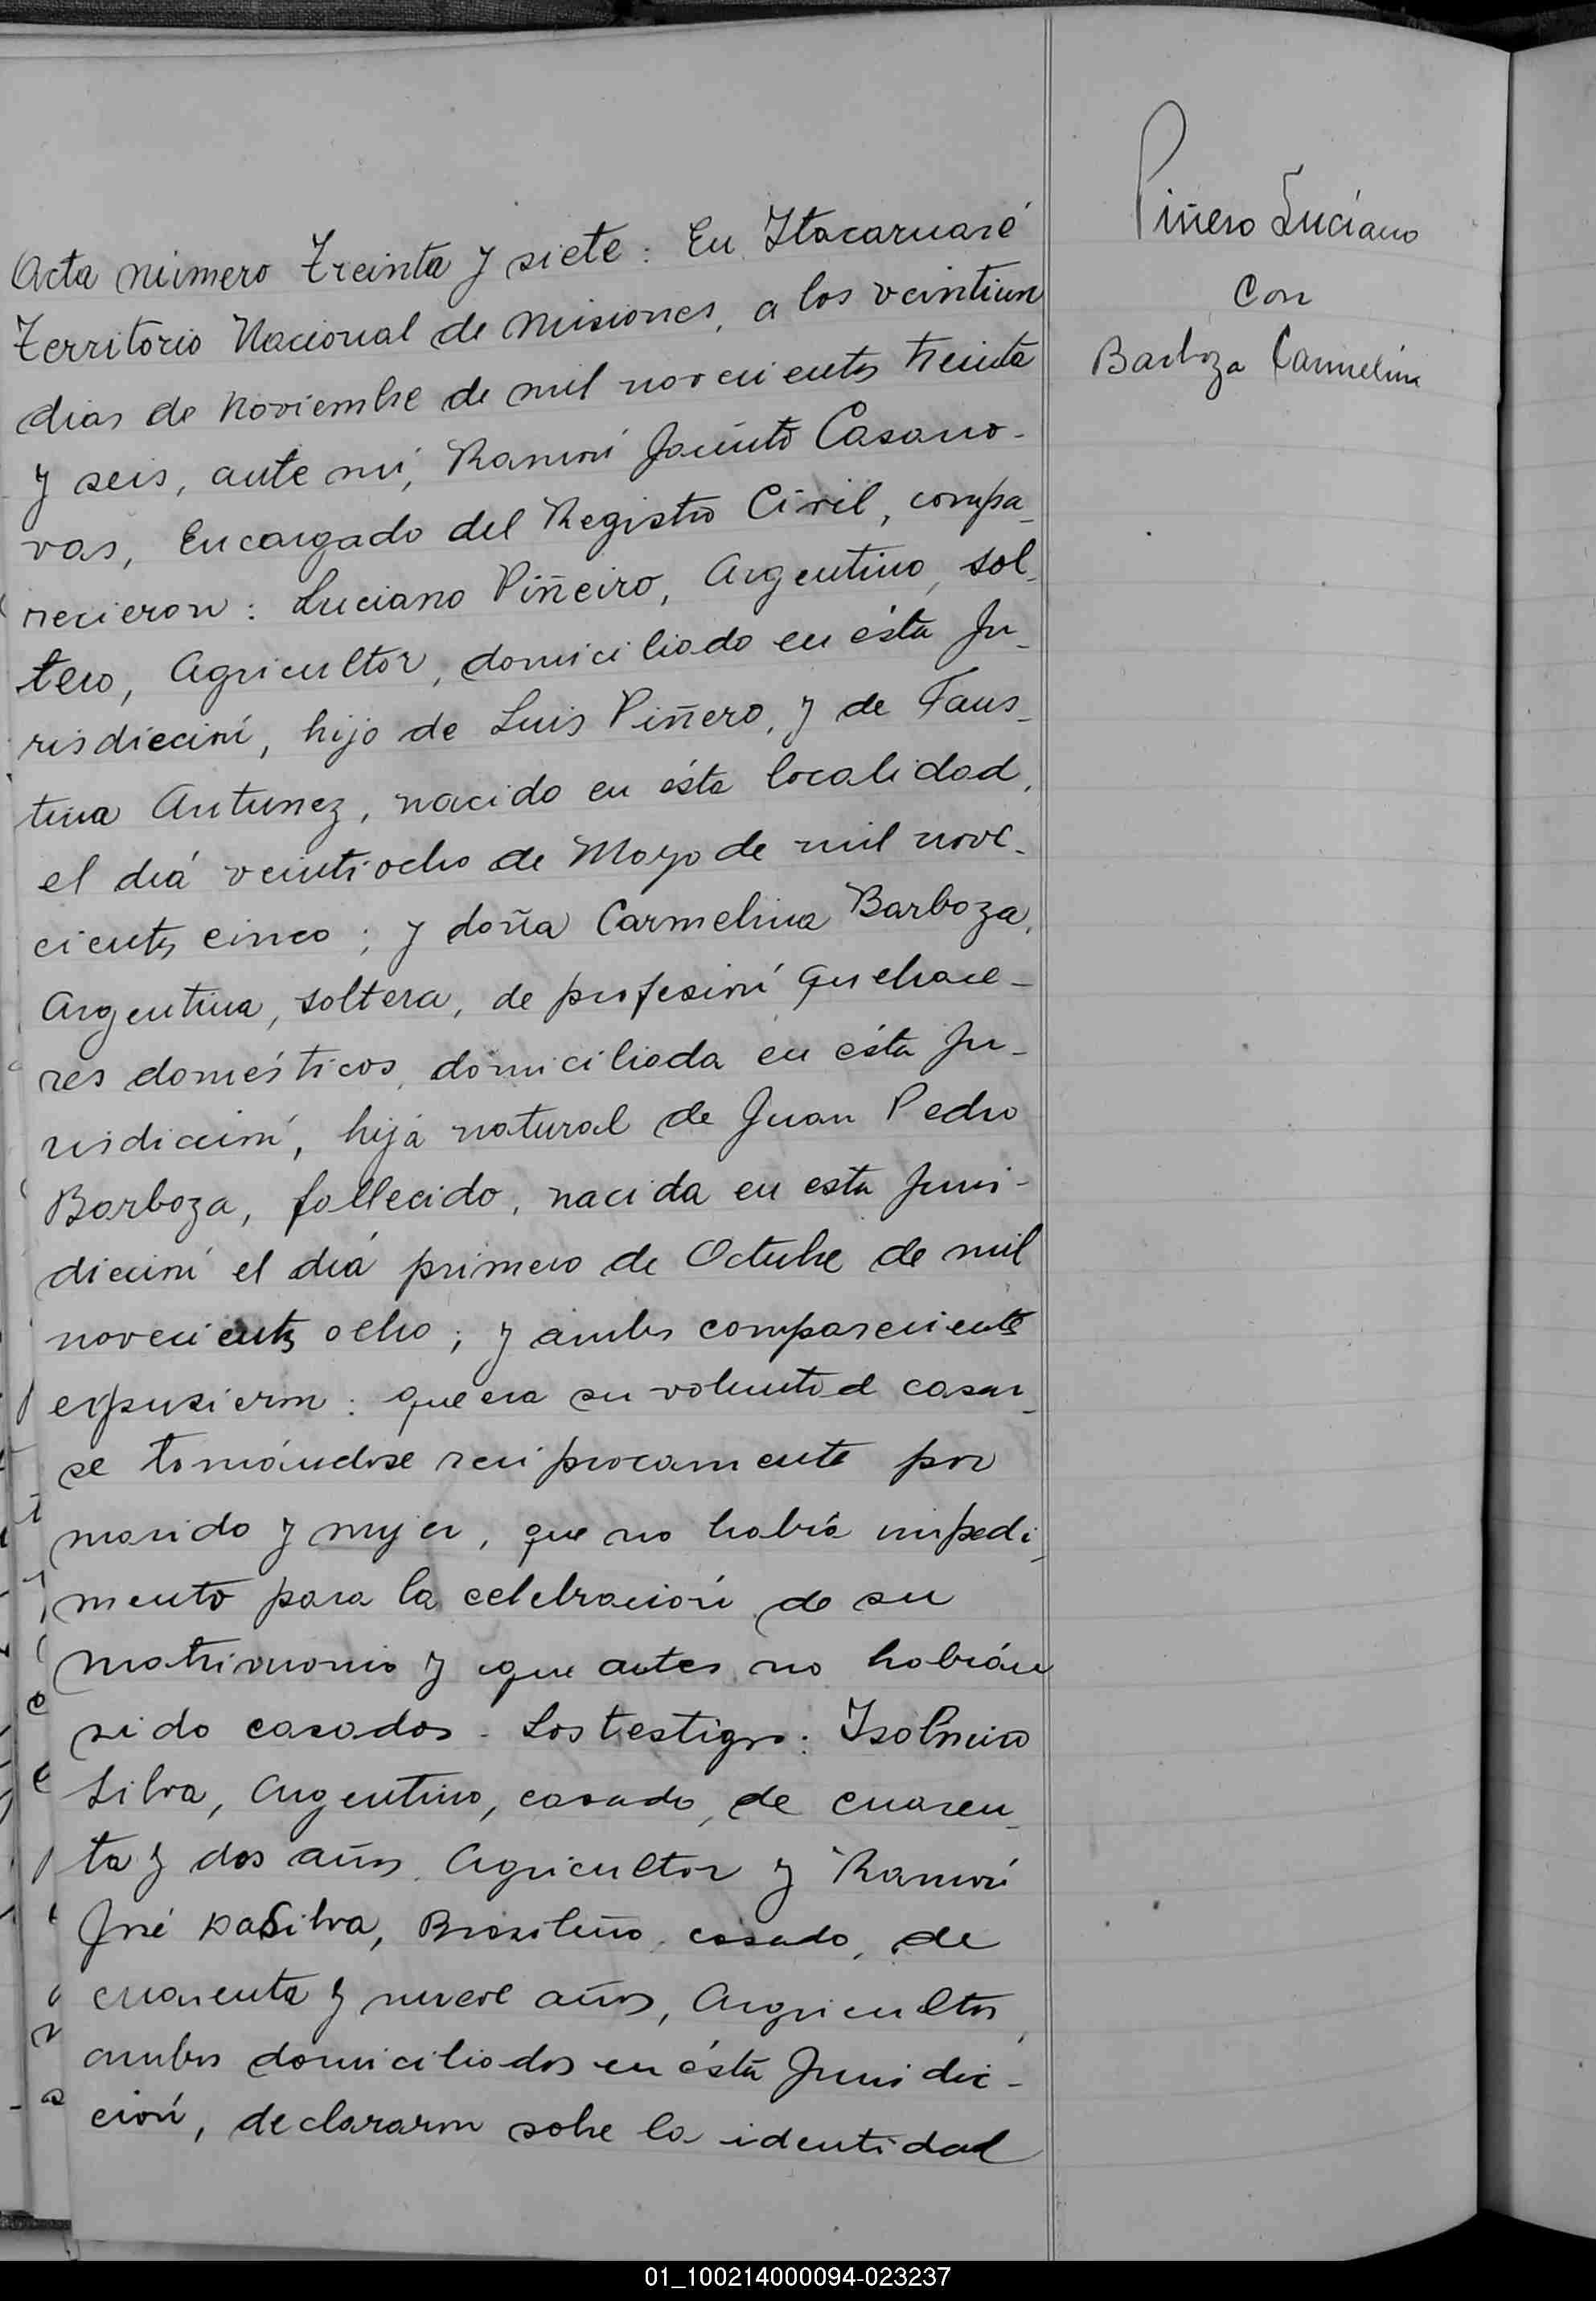 Acta número treinta y siete: En Itacaruaré
territorio Nacional de Misiones, a los veintiun
dias de Noviembre de mil novecientos treinta
y seis, ante mí, Ramón Jacinto Casano-
vas, Encargado del Registro Civil, compa-
recieron: Luciano Piñeiro, Argentino, sol-
tero, Agricultor, domiciliado en ésta Ju-
risdiccion, hijo de Luis Piñero, y de Faus-
tina Antunez, nacido en ésta localidad,
el diá veintiocho de Mayo de mil nove-
cientos cinco; y doña Carmelina Barboza,
Argentina, soltera, de profesión quehace-
res domésticos, domiciliada en ésta Ju-
risdiccion, hija natural de Juan Pedro
Barboza, fallecido, nacida en esta Juris-
diccion el diá primero de Octubre de mil
novecientos ocho; y ambos comparecientes
expusieron: que era su voluntad casar-
se tomándose reciprocamente por
marido y mujer, que no habia impedi-
mento para la celebración de su
matrimonio y que antes no habián
sido casados. Los testigos: Isolmiro
Silva, Argentino, casado, de cuaren-
ta y dos años, Agricultor y Ramón
José DaSilva, Brasileño, casado, de
cuarenta y nueve años, Agricultor,
ambos domiciliados en ésta Jurisdic-
ción, declararon sobre la identidad
Piñero Luciano
Con
Barboza Carmelina
01_100214000094-023237